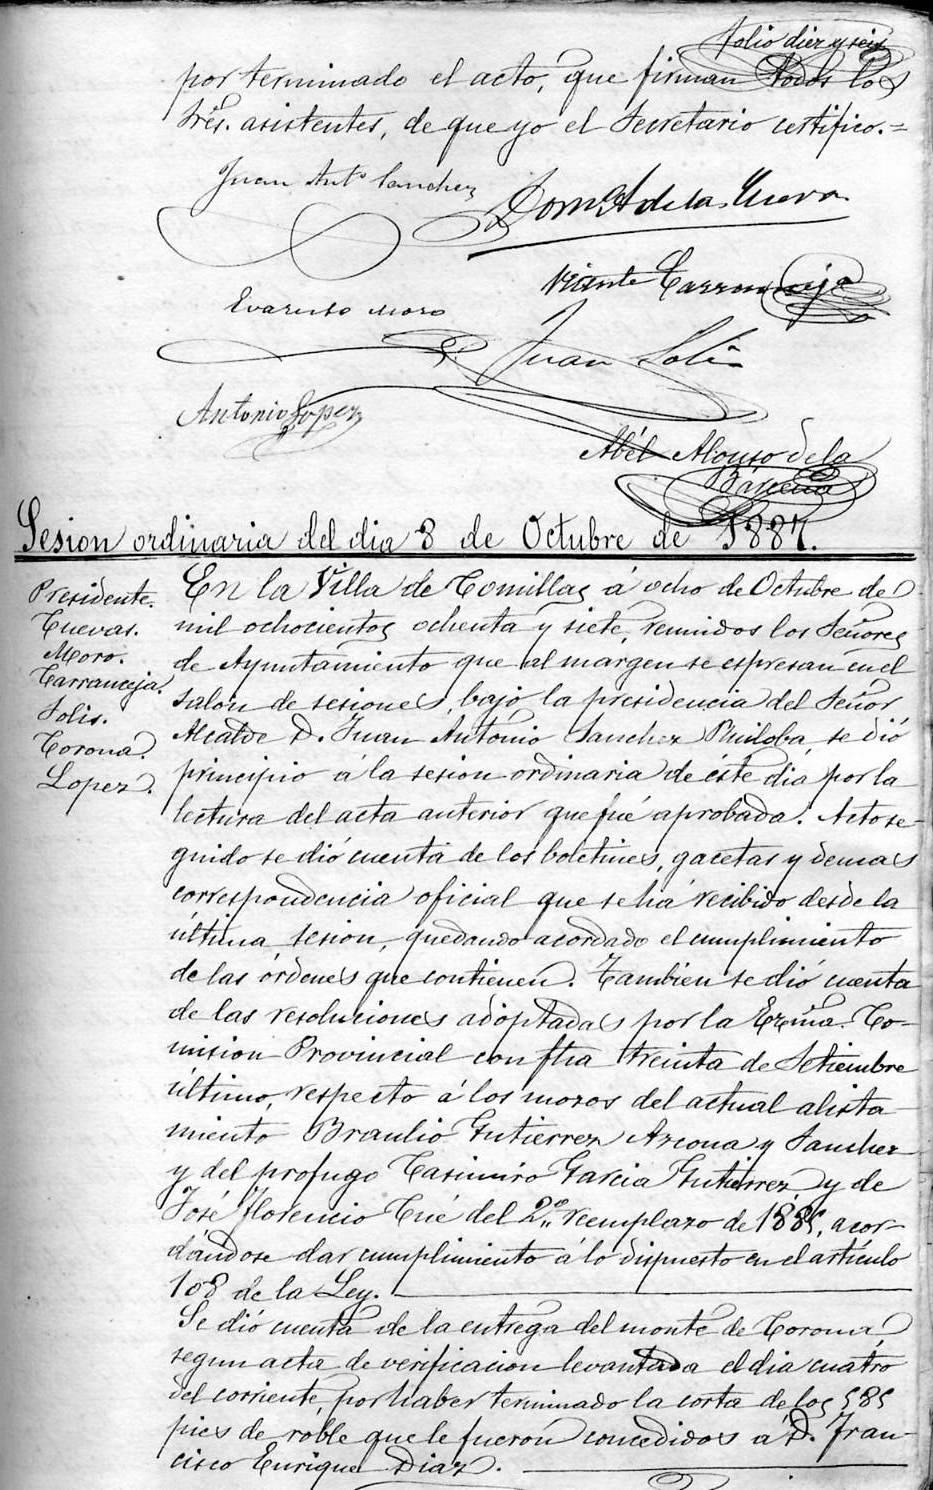 folio diez y seis
por terminado el acto, que firman todos los
Sres. asistentes, de que yo el Secretario certifico.=
Juan Ant.º Sanchez
Dom.º A de la Cueva
Vicente Carranceja
Evaristo Moro
Juan Solis
Antonio Lopez
Abél Alonso de la
Bárcena
Sesion ordinaria del dia 8 de Octubre de 1887.
Presidente.
Cuevas.
Moro.
Carranceja.
Solis.
Corona.
Lopez.
En la Villa de Comillas á ocho de Octubre de
mil ochocientos ochenta y siete, reunidos los Señores
de Ayuntamiento que al margen se espresan en el
salon de sesiones, bajo la presidencia del Señor
Alcalde D. Juan Antonio Sanchez Piniloba, se dió
principio á la sesion ordinaria de éste dia por la
lectura del acta anterior que fué aprobada. Acto se-
guido se dió cuenta de los boletines, gacetas y demas
correspondencia oficial que se há recibido desde la
última sesion, quedando acordado el cumplimiento
de las órdenes que contienen. Tambien se dió cuenta
de las resoluciones adoptadas por la Excma. Co-
mision Provincial con fha treinta de Setiembre
último, respecto á los mozos del actual alista-
miento Braulio Gutierrez Azcona y Sanchez
y del profugo Casimiro Garcia Gutierrez y de
José Florencio Cué del 2º reemplazo de 1885, acor-
dándose dar cumplimiento á lo dispuesto en el artículo
108 de la Ley.
Se dió cuenta de la entrega del monte de Corona,
segun acta de verificacion levantada el dia cuatro
del corriente, por haber terminado la corta de los 585
pies de roble que le fueron concedidos á D. Fran-
cisco Enrique Diaz.